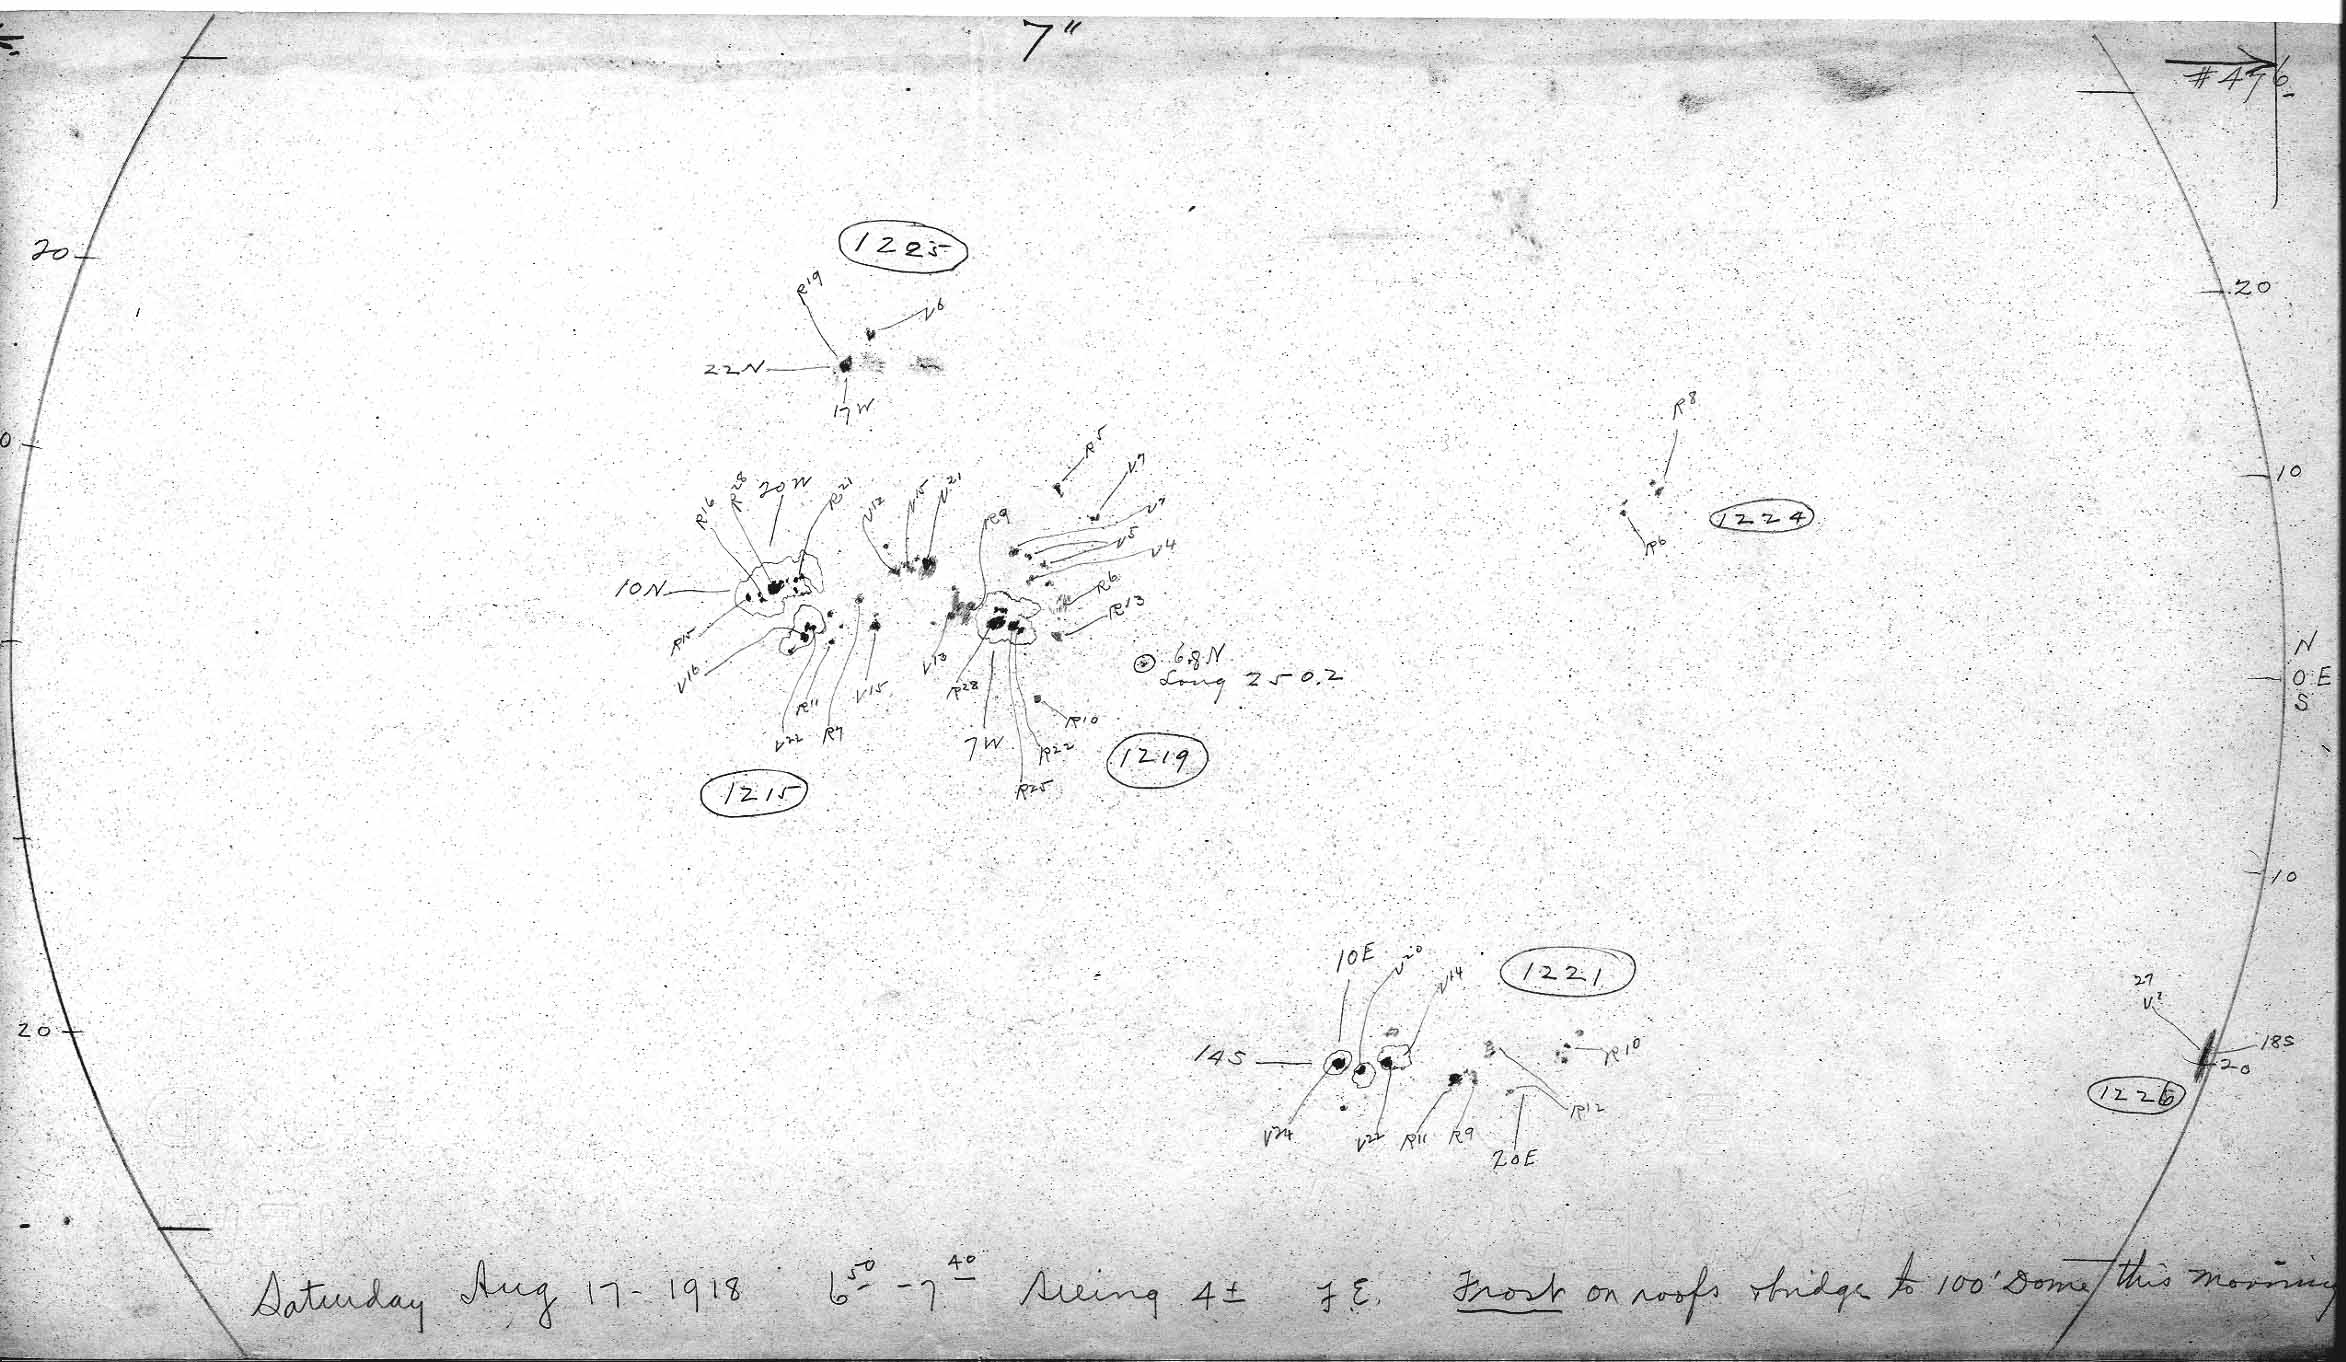 7"
#476
1225
R19
V6
20
20
22N
17W
R5
R8
0
V7
10
R28
20W
R21
V15
V21
R16
V12
R9
V7
1224
V5
V4
R6
10N
R6
R13
R15
N
V16
V13
6.8N
0 E
V15
R28
Long 250.2
S
R11
R10
V22
R7
7W
R22
1219
1215
R25
10
10E
V20
V14
1221
27
V2
14S
R10
18S
20
20
1226
V24
V22
R11
R9
R12
20E
Saturday Aug 17-1918 6 50 - 7 40 Seeing 4± F.E. Frost on roofs & bridge to 100' Dome this morning